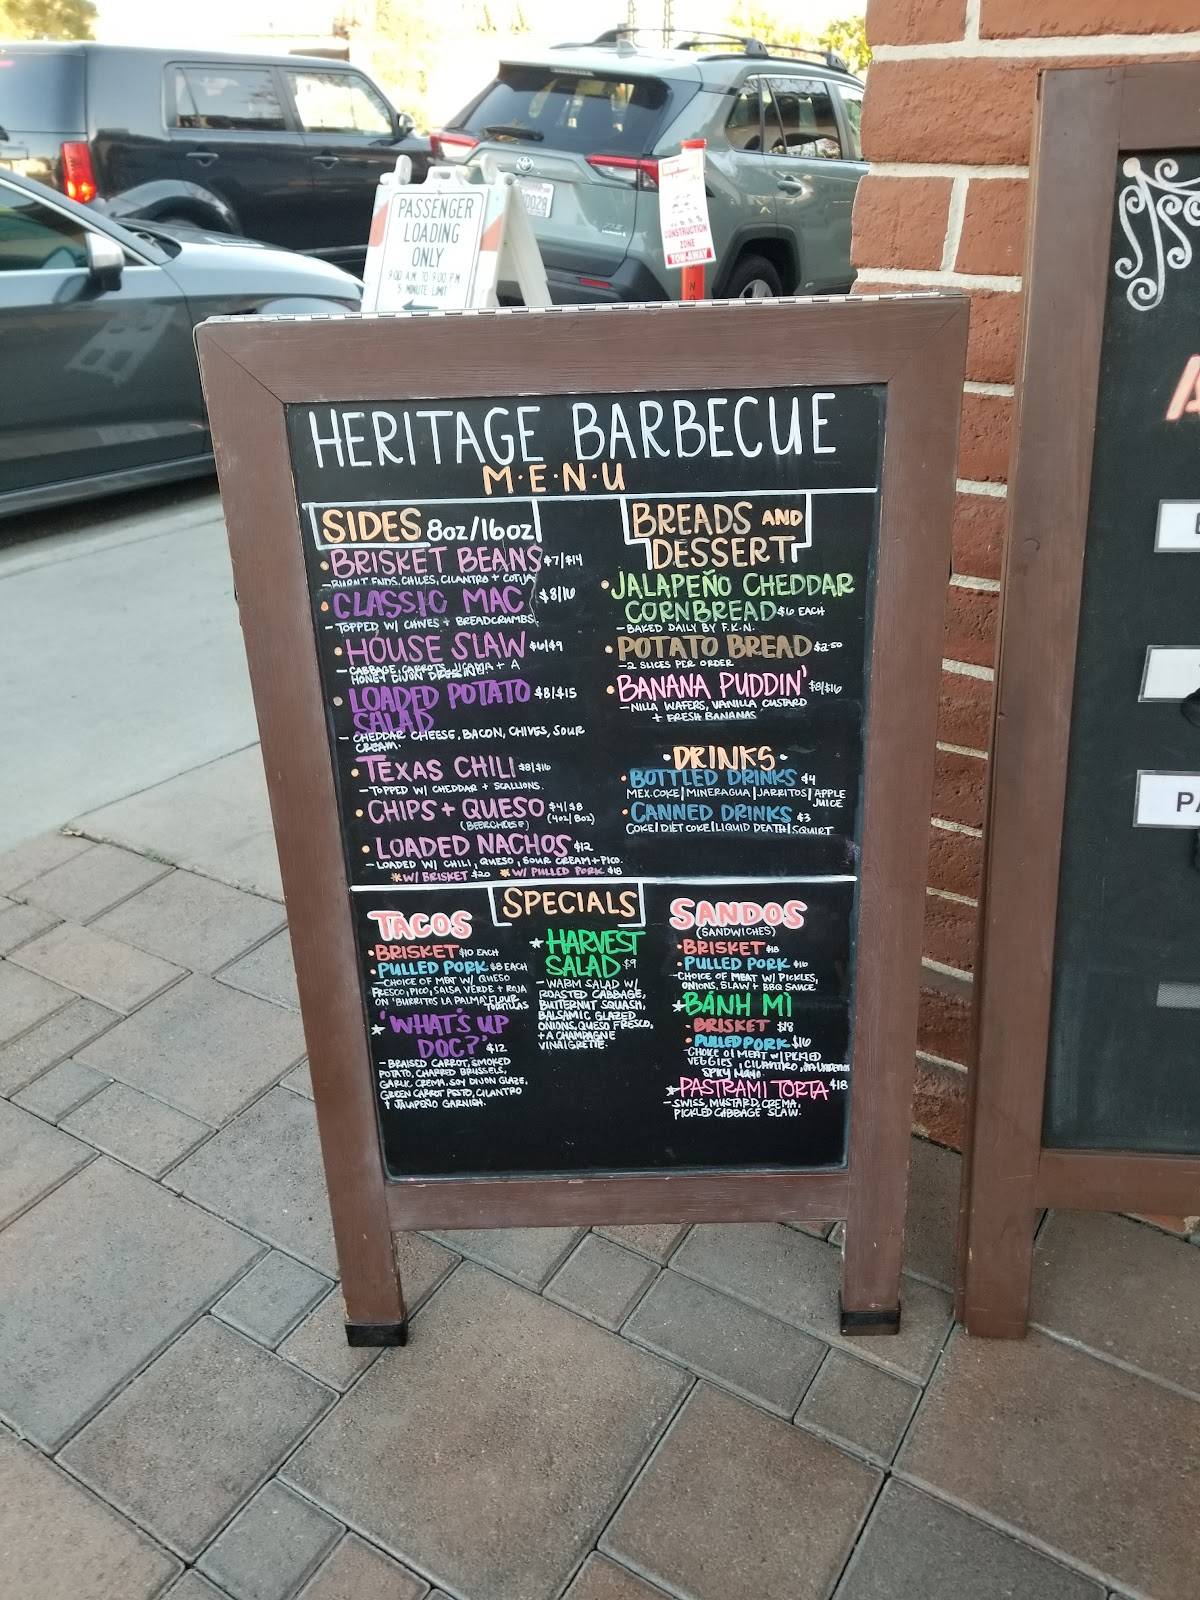 PASSENGER
LOADING
ONLY
9:00 A.M. TO 9:00 P.M.
5 MINUTE LIMIT
CONSTRUCTION
ZONE
TOW-AWAY
HERITAGE BARBECUE
M·E·N·U
SIDES 8oz/16oz
•BRISKET BEANS $7/$14
-BURNT ENDS, CHILES, CILANTRO + COTIJA
•CLASSIC MAC $8/16
-TOPPED W/ CHIVES + BREADCRUMBS.
•HOUSE SLAW $6/$9
-CABBAGE, CARROTS, JICAMA + A
HONEY DIJON DRESSING.
•LOADED POTATO $8/$15
SALAD
- CHEDDAR CHEESE, BACON, CHIVES, SOUR
CREAM.
•TEXAS CHILI $8/$16
-TOPPED W/ CHEDDAR + SCALLIONS.
•CHIPS + QUESO $4/$8
(BEERCHEESE) (4oz/8oz)
•LOADED NACHOS $12
-LOADED W/ CHILI, QUESO, SOUR CREAM+PICO.
*W/ BRISKET $20 *W/ PULLED PORK $18
BREADS AND
DESSERT
•JALAPEÑO CHEDDAR
CORNBREAD $6 EACH
-BAKED DAILY BY F.K.N.
•POTATO BREAD $2.50
-2 SLICES PER ORDER
•BANANA PUDDIN' $8/$16
-NILLA WAFERS, VANILLA CUSTARD
+ FRESH BANANAS
•DRINKS•
•BOTTLED DRINKS $4
MEX.COKE|MINERAGUA|JARRITOS|APPLE
JUICE
•CANNED DRINKS $3
COKE|DIET COKE|LIQUID DEATH|SQUIRT
SPECIALS
TACOS
•BRISKET $10 EACH
•PULLED PORK $8 EACH
-CHOICE OF MEAT W/ QUESO
FRESCO, PICO, SALSA VERDE + ROJA
ON 'BURRITOS LA PALMA' FLOUR
TORTILLAS
★'WHAT'S UP
DOC?' $12
-BRAISED CARROT, SMOKED
POTATO, CHARRED BRUSSELS,
GARLIC CREMA, SOY DIJON GLAZE,
GREEN CARROT PESTO, CILANTRO
+ JALAPEÑO GARNISH.
★HARVEST
SALAD $9
-WARM SALAD W/
ROASTED CABBAGE,
BUTTERNUT SQUASH,
BALSAMIC GLAZED
ONIONS, QUESO FRESCO,
+A CHAMPAGNE
VINAIGRETTE.
SANDOS
(SANDWICHES)
•BRISKET $18
•PULLED PORK $16
-CHOICE OF MEAT W/ PICKLES,
ONIONS, SLAW + BBQ SAUCE.
★BÁNH MÌ
•BRISKET $18
•PULLED PORK $16
-CHOICE OF MEAT W/ PICKLED
VEGGIES, CILANTRO, JALAPEÑOS
SPICY MAYO.
★PASTRAMI TORTA $18
-SWISS, MUSTARD, CREMA,
PICKLED CABBAGE SLAW.